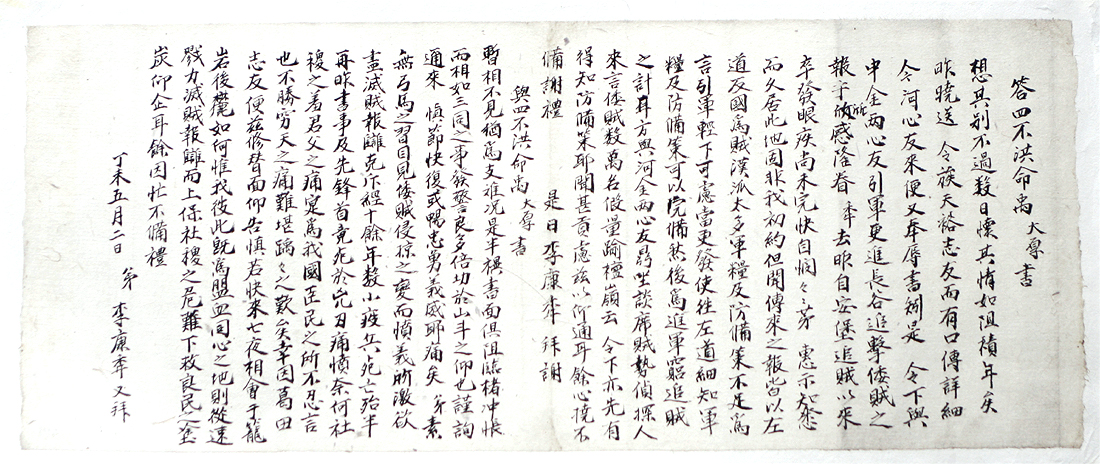 答四不洪命禹大雅書
想其別不過数日懷其情如阻積年矣
昨曉送 令筱天裕志友而有口傳詳細
今河心友來便又奉辱書矧是 令下與
申金两心友引軍更進長谷追擊倭賊之
報乎做感溢眷 奉去昨自安堡追賊以來
卒發眼疾尚未完快自悶々々弟 惠示知悉
而久居此地固非我初約但聞傳來之報皆以左
道反國為賊漢派太多軍糧及防備策不足為
言引軍輕下可慮當更發使徃左道細知軍
糧及防備策可以完備然後為進軍窮追賊
之計耳方與河金两心友昌坐談席賊勢偵探人
來言倭賊数萬名假量踰檀嶺云 令下亦先有
得知防備策耶聞甚貢慮玆以所通耳餘心撓不
備謝禮 是日李康秊拜謝
與四不洪命禹大雅書
暫相不見猶為支难况是半襈書面俱阻臨楮冲悵
而相如三同之事發警良多倍切於山斗之仰也謹詢
通來 慎節快復或暢忠勇義威耶痛矣 弟素
無弓馬之習目見倭賊侵掠之變而憤義所激欲
盡滅賊報雠克斥經十餘年教小疲兵死亡殆半
再昨書事及先鋒首竟死於兇刃痛憤奈何社
稷之羞君父之痛寔為我國臣民之所不忍言
也不勝窮天之痛難堪蹐々之歎矣幸因葛田
志友便玆修替而仰告慎若快來七夜相會于籠
岩後麓如何惟我彼此既為盟血同心之地則從速
戮力滅賊報雠而上保社稷之危難下救良民之塗
炭仰企耳餘因忙不備禮
丁未五月二日 弟 李康秊又拜